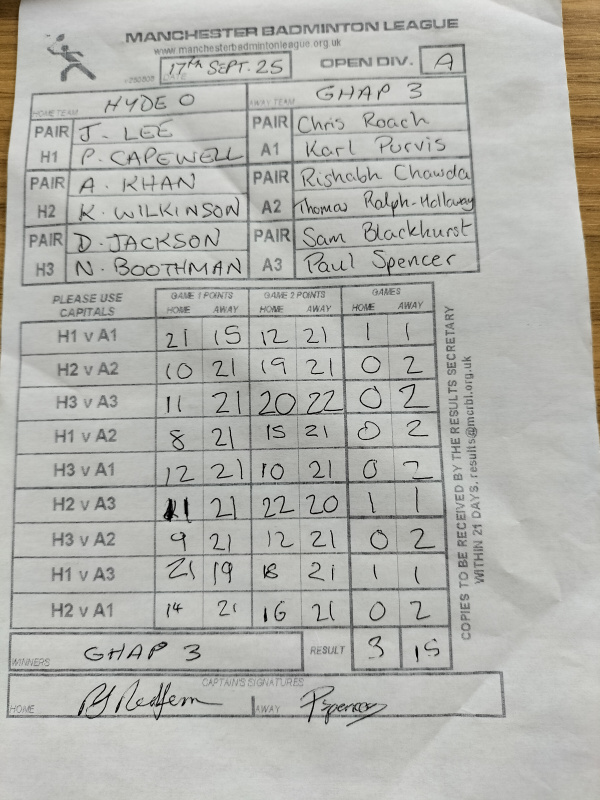 MANCHESTER BADMINTON LEAGUE
www.manchesterbadmintonleague.org.uk
DATE 17th SEPT. 25 OPEN DIV. A
HOME TEAM HYDE O AWAY TEAM GHAP 3
PAIR J. LEE PAIR Chris Roach
H1 P. CAPEWELL A1 Karl Purvis
PAIR A. KHAN PAIR Rishabh Chawda
H2 K. WILKINSON A2 Thomas Ralph-Hollaway
PAIR D. JACKSON PAIR Sam Blackhurst
H3 N. BOOTHMAN A3 Paul Spencer
PLEASE USE CAPITALS GAME 1 POINTS GAME 2 POINTS GAMES
HOME AWAY HOME AWAY HOME AWAY
H1 v A1 21 15 12 21 1 1
H2 v A2 10 21 19 21 0 2
H3 v A3 11 21 20 22 0 2
H1 v A2 8 21 15 21 0 2
H3 v A1 12 21 10 21 0 2
H2 v A3 11 21 22 20 1 1
H3 v A2 9 21 12 21 0 2
H1 v A3 21 19 18 21 1 1
H2 v A1 14 21 16 21 0 2
WINNERS GHAP 3 RESULT 3 15
CAPTAIN'S SIGNATURES
HOME AWAY PSpencer
COPIES TO BE RECEIVED BY THE RESULTS SECRETARY
WITHIN 21 DAYS. results@mcrbl.org.uk